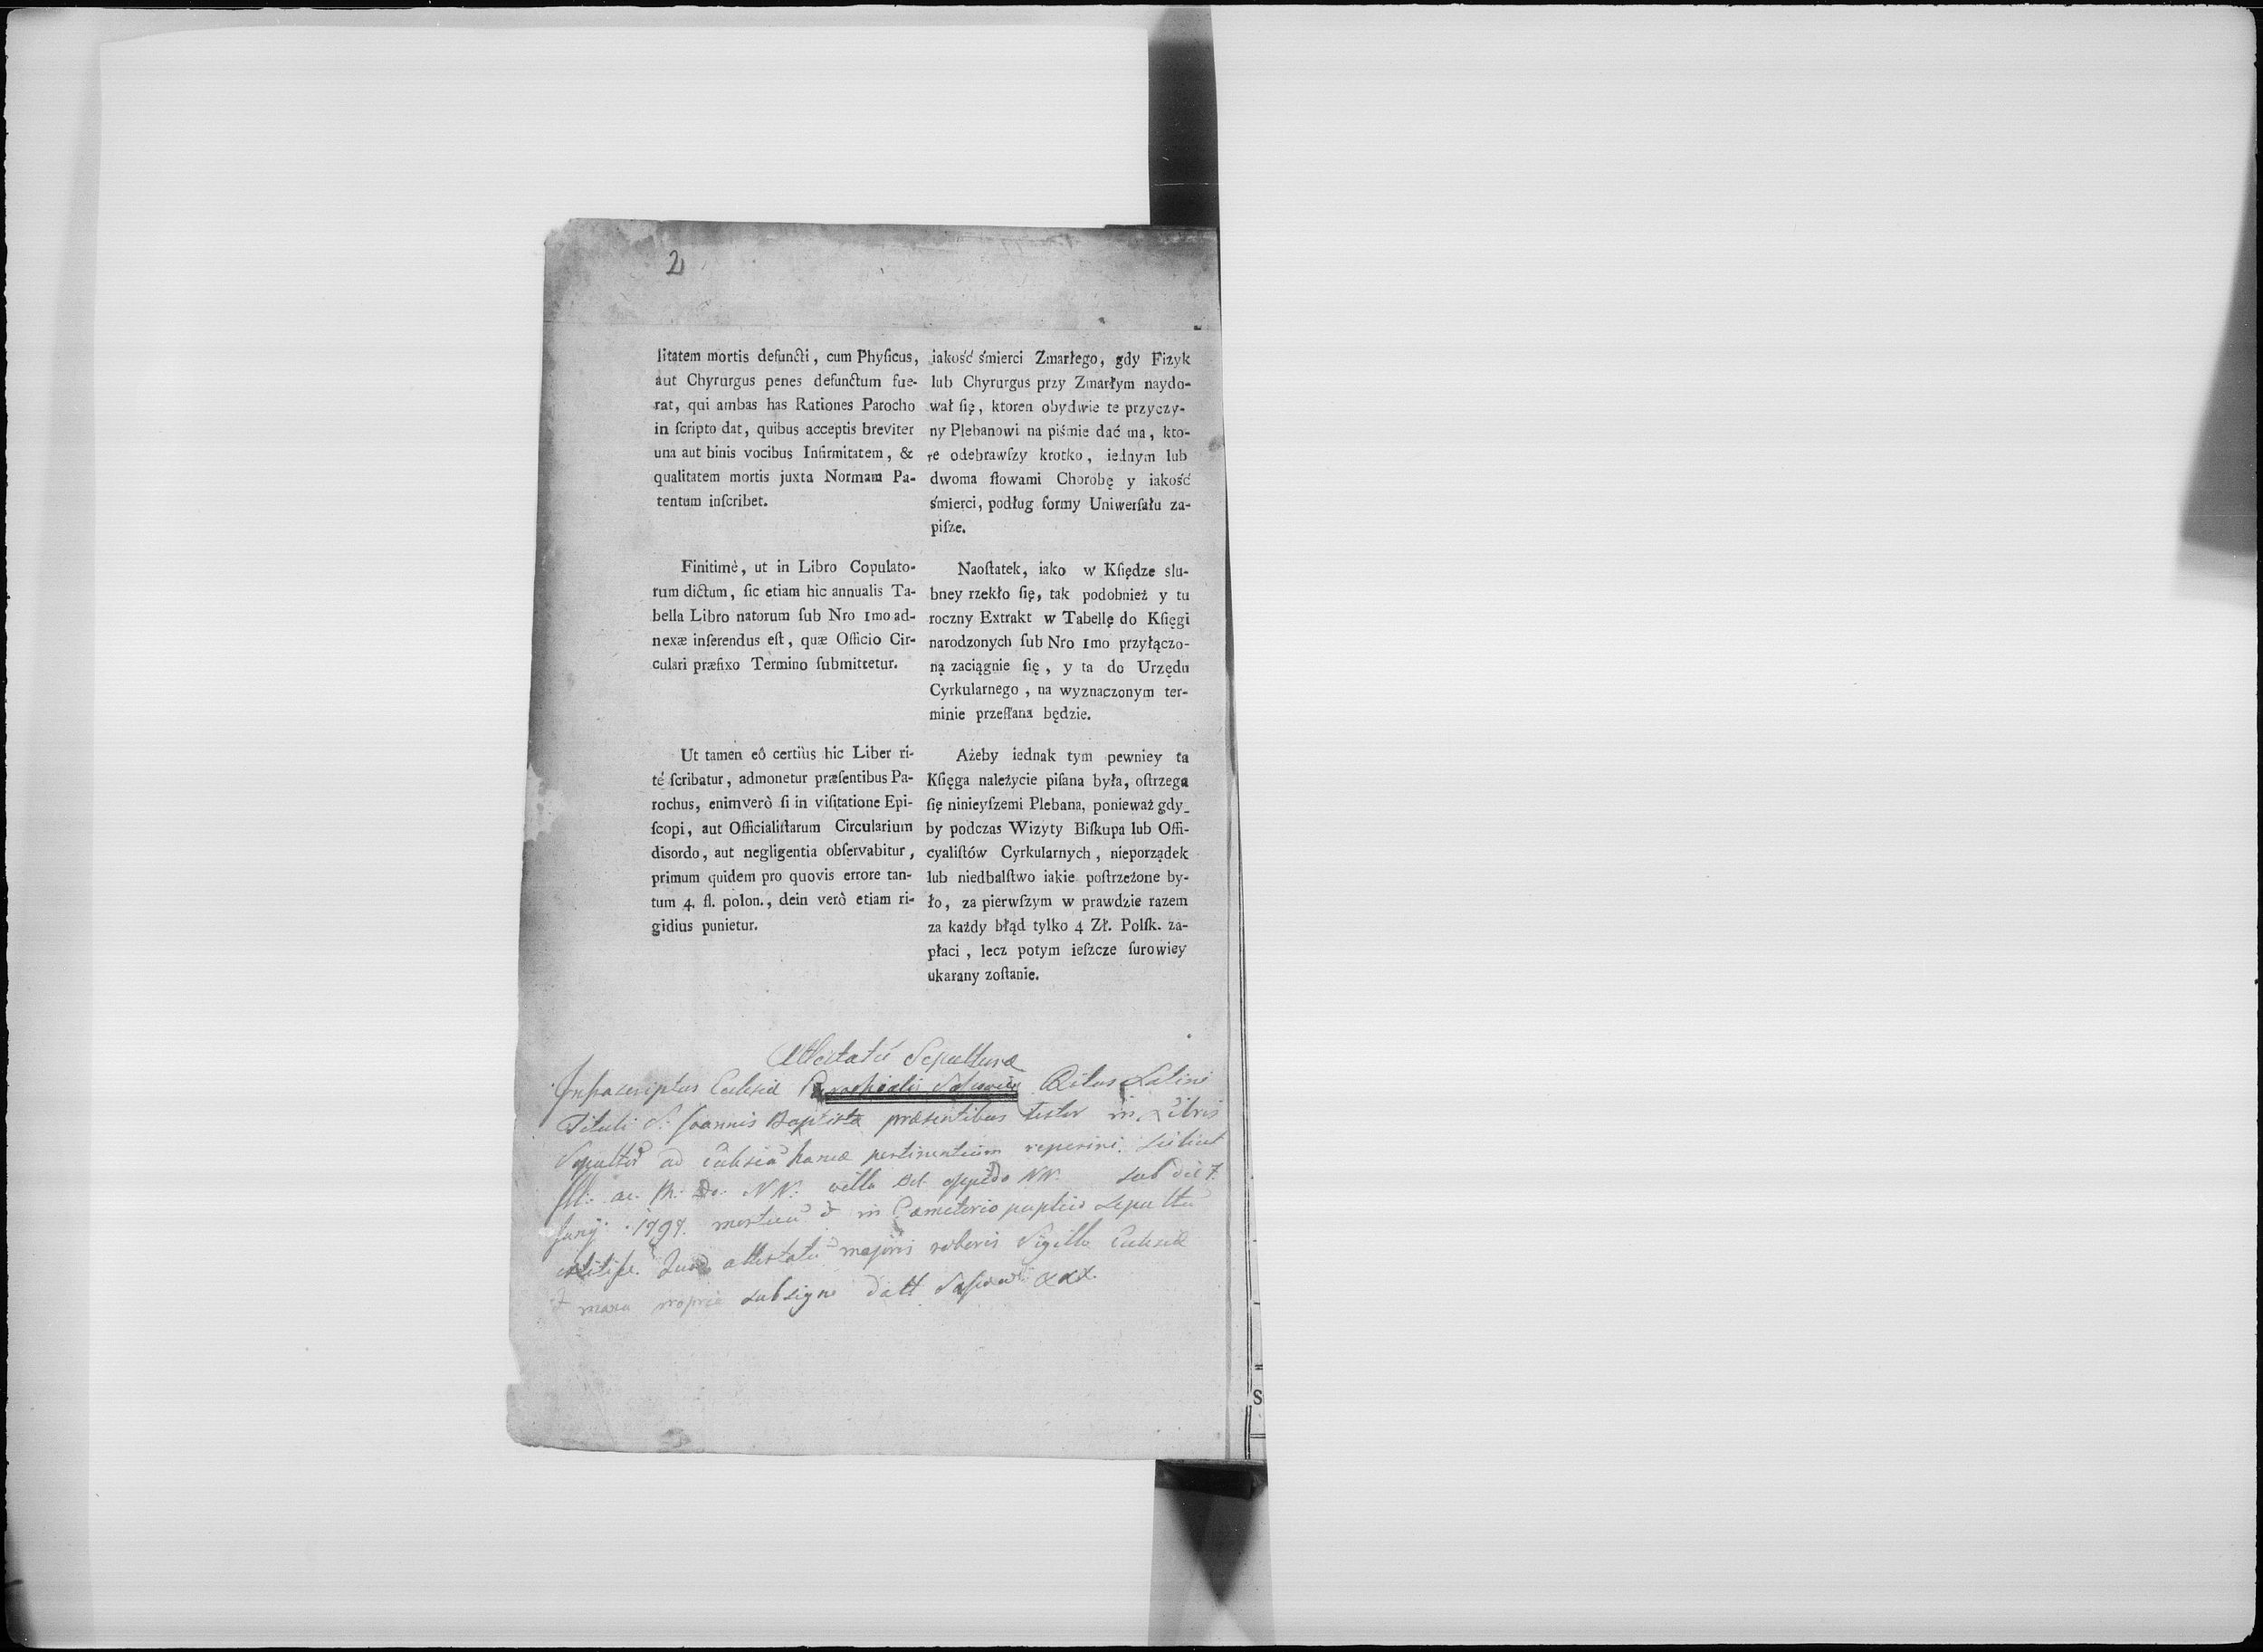 2
litatem mortis defuncti, cum Phyſicus,
aut Chyrurgus penes defunctum fue-
rat, qui ambas has Rationes Parocho
in ſcripto dat, quibus acceptis breviter
una aut binis vocibus Infirmitatem, &
qualitatem mortis juxta Normam Pa-
tentum inſcribet.
Finitimè, ut in Libro Copulato-
rum dictum, ſic etiam hic annualis Ta-
bella Libro natorum ſub Nro 1mo ad-
nexæ inſerendus eſt, quæ Officio Cir-
culari præfixo Termino ſubmittetur.
Ut tamen eô certiùs hic Liber ri-
té ſcribatur, admonetur præſentibus Pa-
rochus, enimverò ſi in viſitatione Epi-
ſcopi, aut Officialiſtarum Circularium
disordo, aut negligentia obſervabitur,
primum quidem pro quovis errore tan-
tum 4. fl. polon., dein verò etiam ri-
gidius punietur.
iakość śmierci Zmarłego, gdy Fizyk
lub Chyrurgus przy Zmarłym naydo-
wał ſię, ktoren obydwie te przyczy-
ny Plebanowi na piśmie dać ma, kto-
re odebrawſzy krotko, iednym lub
dwoma ſłowami Chorobę y iakość
śmierci, podług formy Uniwerſału za-
piſze.
Naoſtatek, iako w Kſiędze slu-
bney rzekło ſię, tak podobnież y tu
roczny Extrakt w Tabellę do Kſięgi
narodzonych ſub Nro 1mo przyłączo-
ną zaciągnie ſię, y ta do Urzędu
Cyrkularnego, na wyznaczonym ter-
minie przeſłana będzie.
Ażeby iednak tym pewniey ta
Kſięga należycie piſana była, oſtrzega
ſię ninieyſzemi Plebana, ponieważ gdy_
by podczas Wizyty Biſkupa lub Offi-
cyaliſtów Cyrkularnych, nieporządek
lub niedbalſtwo iakie poſtrzeżone by-
ło, za pierwſzym w prawdzie razem
za każdy błąd tylko 4 Zł. Polſk. za-
płaci, lecz potym ieſzcze ſurowiey
ukarany zoſtanie.
Sepulturæ
Infrascriptus Ecclesiæ Parochialis Ritus Latini
Tituli S. Joannis Baptistæ præsentibus testor in Libris
ad pertinentium reperiri
NN. villa oppido NN. sub die 7
Junÿ 1797. in Cæmeterio
majoris roboris Sigillo Ecclesiæ
manu propria subsigno
S